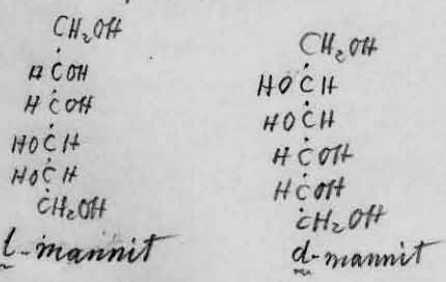 CH₂OH
HCOH
HCOH
HOCH
HOCH
CH₂OH
l-mannit
CH₂OH
HOCH
HOCH
HCOH
HCOH
CH₂OH
d-mannit